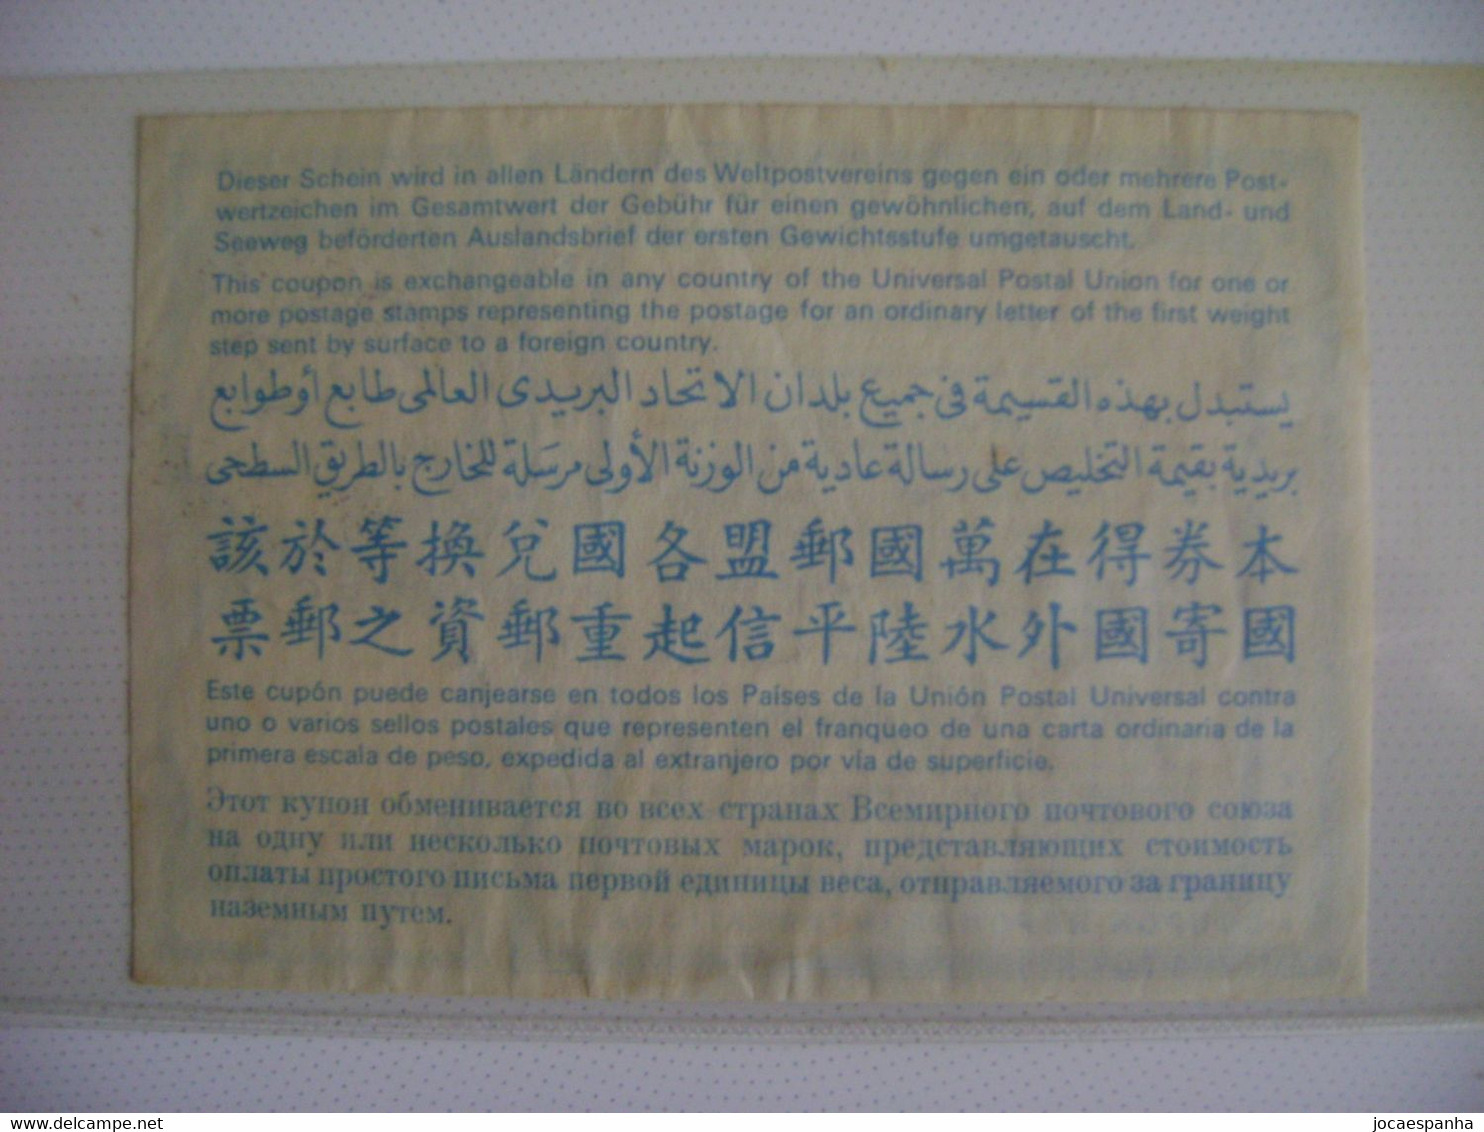 Dieser Schein wird in allen Ländern des Weltpostvereins gegen ein oder mehrere Post-
wertzeichen im Gesamtwert der Gebühr für einen gewöhnlichen, auf dem Land- und
Seeweg beförderten Auslandsbrief der ersten Gewichtsstufe umgetauscht.
This coupon is exchangeable in any country of the Universal Postal Union for one or
more postage stamps representing the postage for an ordinary letter of the first weight
step sent by surface to a foreign country.
يستبدل بهذه القسيمة فى جميع بلدان الاتحاد البريدى العالمى طابع أو طوابع
بريدية بقيمة التخليص على رسالة عادية من الوزنة الأولى مرسلة للخارج بالطريق السطحى
本券得在萬國郵盟各國兌換等於該
國寄國外水陸平信起重郵資之郵票
Este cupón puede canjearse en todos los Países de la Unión Postal Universal contra
uno o varios sellos postales que representen el franqueo de una carta ordinaria de la
primera escala de peso, expedida al extranjero por vía de superficie.
Этот купон обменивается во всех странах Всемирного почтового союза
на одну или несколько почтовых марок, представляющих стоимость
оплаты простого письма первой единицы веса, отправляемого за границу
наземным путем.
delcampe.net
jocaespanha